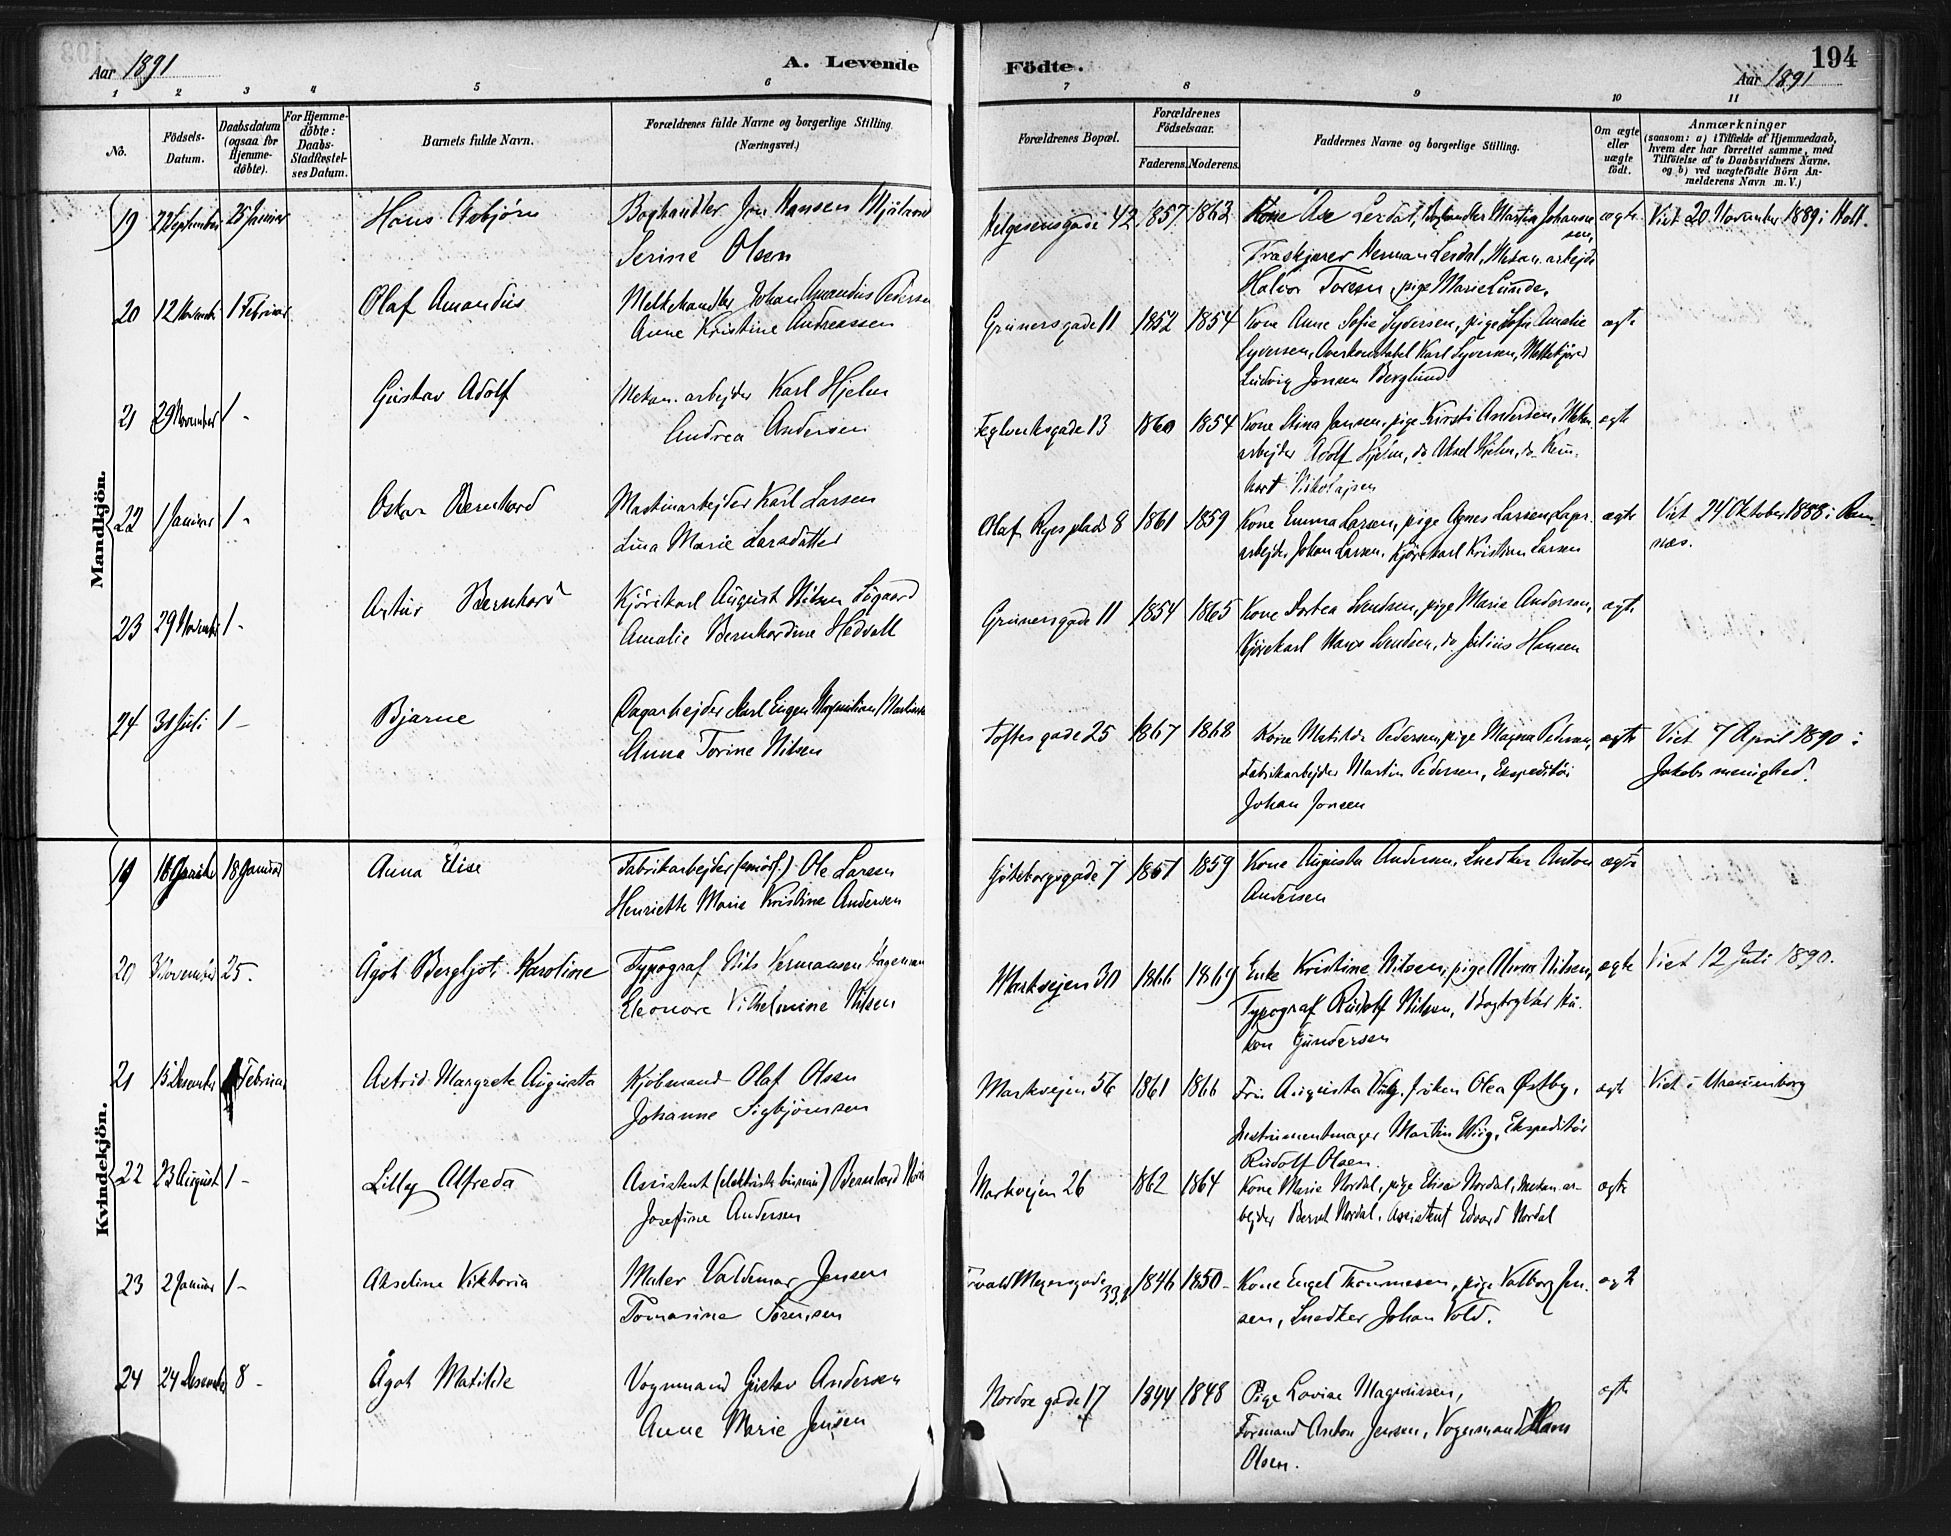 Aar 1891
A. Levende
Födte.
194
Aar 1891
1 2 3 4 5 6 7 8 9 10 11
No.
Födsels-
Datum.
Daabsdatum
(ogsaa for
Hjemme-
døbte).
For Hjemme-
døbte:
Daabs-
Stadfæstel-
ses Datum.
Barnets fulde Navn.
Forældrenes fulde Navne og borgerlige Stilling.
(Næringsvei.)
Forældrenes Bopæl.
Forældrenes
Födselsaar.
Faderens. Moderens.
Faddernes Navne og borgerlige Stilling.
Om ægte
eller
uægte
født.
Anmærkninger
(saasom: a) i Tilfælde af Hjemmedaab,
hvem der har forrettet samme, med
Tilføielse af to Daabsvidners Navne.
og b) ved uægtefödte Börn An-
melderens Navn m. V.)
Mandkjön.
19 22 September 25 Januar Hans Asbjørn Boghandler Jon Hansen Mjåland
Serine Olsen
Helgesensgade 42. 1857 1862 Kone Åse Lerdal, Martin Johannes
sen,
Herman Lerdal, Mekan. arbejder
Halvor Toresen, pige Marie Lunde,
ægte Viet 20 November 1889 i Holt.
20 12 November 1 Februar Olaf Amandus Melkehandler Johan Amandus Pedersen
Anne Kristine Andreassen
Grunersgade 11 1852 1854 Kone Anne Sofie Syversen, pige Sofie Amalie
Syversen, Overkonstabel Karl Syversen, Melkekjører
Ludvig Jonsen Berglund.
ægte
21 29 November 1 - Gustav Adolf Mekan. arbejder Karl Hjelm
Andrea Andersen
Teglverksgade 13 1860 1854 Kone Stina Jansen, pige Kirsti Andersen, Mekan.
arbejder Adolf Hjelm, do Aksel Hjelm, do
Nikolajsen
ægte
22 1 Januar 1 - Oskar Bernhard Maskinarbejder Karl Larsen
Lina Marie Larsdatter
Olaf Ryes plads 8 1861 1859 Kone Emma Larsen, pige Agnes Larsen,
arbejder Johan Larsen, Kjørekarl Kristian Larsen
ægte Viet 24 Oktober 1888 i Ram-
næs.
23 29 November 1 - Artur Bernhard Kjørekarl August Nilsen Søgaard
Amalie Bernhardine Hedvall
Grunersgade 11 1854 1865 Kone Dortea Svendsen, pige Marie Andersen,
Kjørekarl Hans Svendsen, do Julius Hansen
ægte
24 31 Juli 1 - Bjarne Dagarbejder Karl Eugen Maximilian
Anna Torine Nilsen
Toftesgade 25 1867 1868 Kone Matilde Pedersen, pige Magna Pedersen,
Fabrikarbejder Martin Pedersen, Ekspeditør
Johan Jonsen
ægte Viet 7 April 1890 i
Jakobs menighed.
Kvindekjön.
19 18 Januar Anna Elise Fabrikarbejder Ole Larsen
Henriette Marie Kristine Andersen
Göteborgsgade 7 1857 1859 Kone Augusta Andersen, Snedker Anton
Andersen
ægte
20 3 November 25 - Ågot Bergljot Karoline Typograf Nils Hermansen
Eleonore Vilhelmine Nilsen
Markvejen 30 1866 1869 Enke Kristine Nilsen, pige Alma Nilsen,
Typograf Rudolf Nilsen, Bogtrykker Hå-
kon Gundersen
ægte Viet 12 Juli 1890.
21 15 Desember Februar Astrid Margrete Augusta Kjøbmand Olaf Olsen
Johanne Sigbjørnsen
Markvejen 56 1861 1866 Fru Augusta Wiig, frøken Olea Østby,
Instrumentmager Martin Wiig, Ekspeditør
Rudolf Olsen.
ægte Viet i Uranienborg
22 23 August 1 - Lilly Alfreda Assistent (elektrisk bureau) Bernhard
Josefine Andersen
Markvejen 26 1862 1864 Kone Marie Nordal, pige Elise Nordal, mekan. ar-
bejder Bernt Nordal, Assistent Edvard Nordal
ægte
23 2 Januar 1 - Akseline Viktoria Maler Valdemar Jensen
Tomasine Sørensen
Meyersgade 33 1846 1850 - Kone Engel, pige Valborg Jen-
sen, Snedker Johan Vold.
ægte
24 24 Desember 8 - Ågot Matilde Vognmand Gustav Andersen
Anne Marie Jensen
Nordre gade 17 1844 1848 Pige Lovise Magnussen,
Formand Anton Jensen, Vognmand Hans
Olsen.
ægte